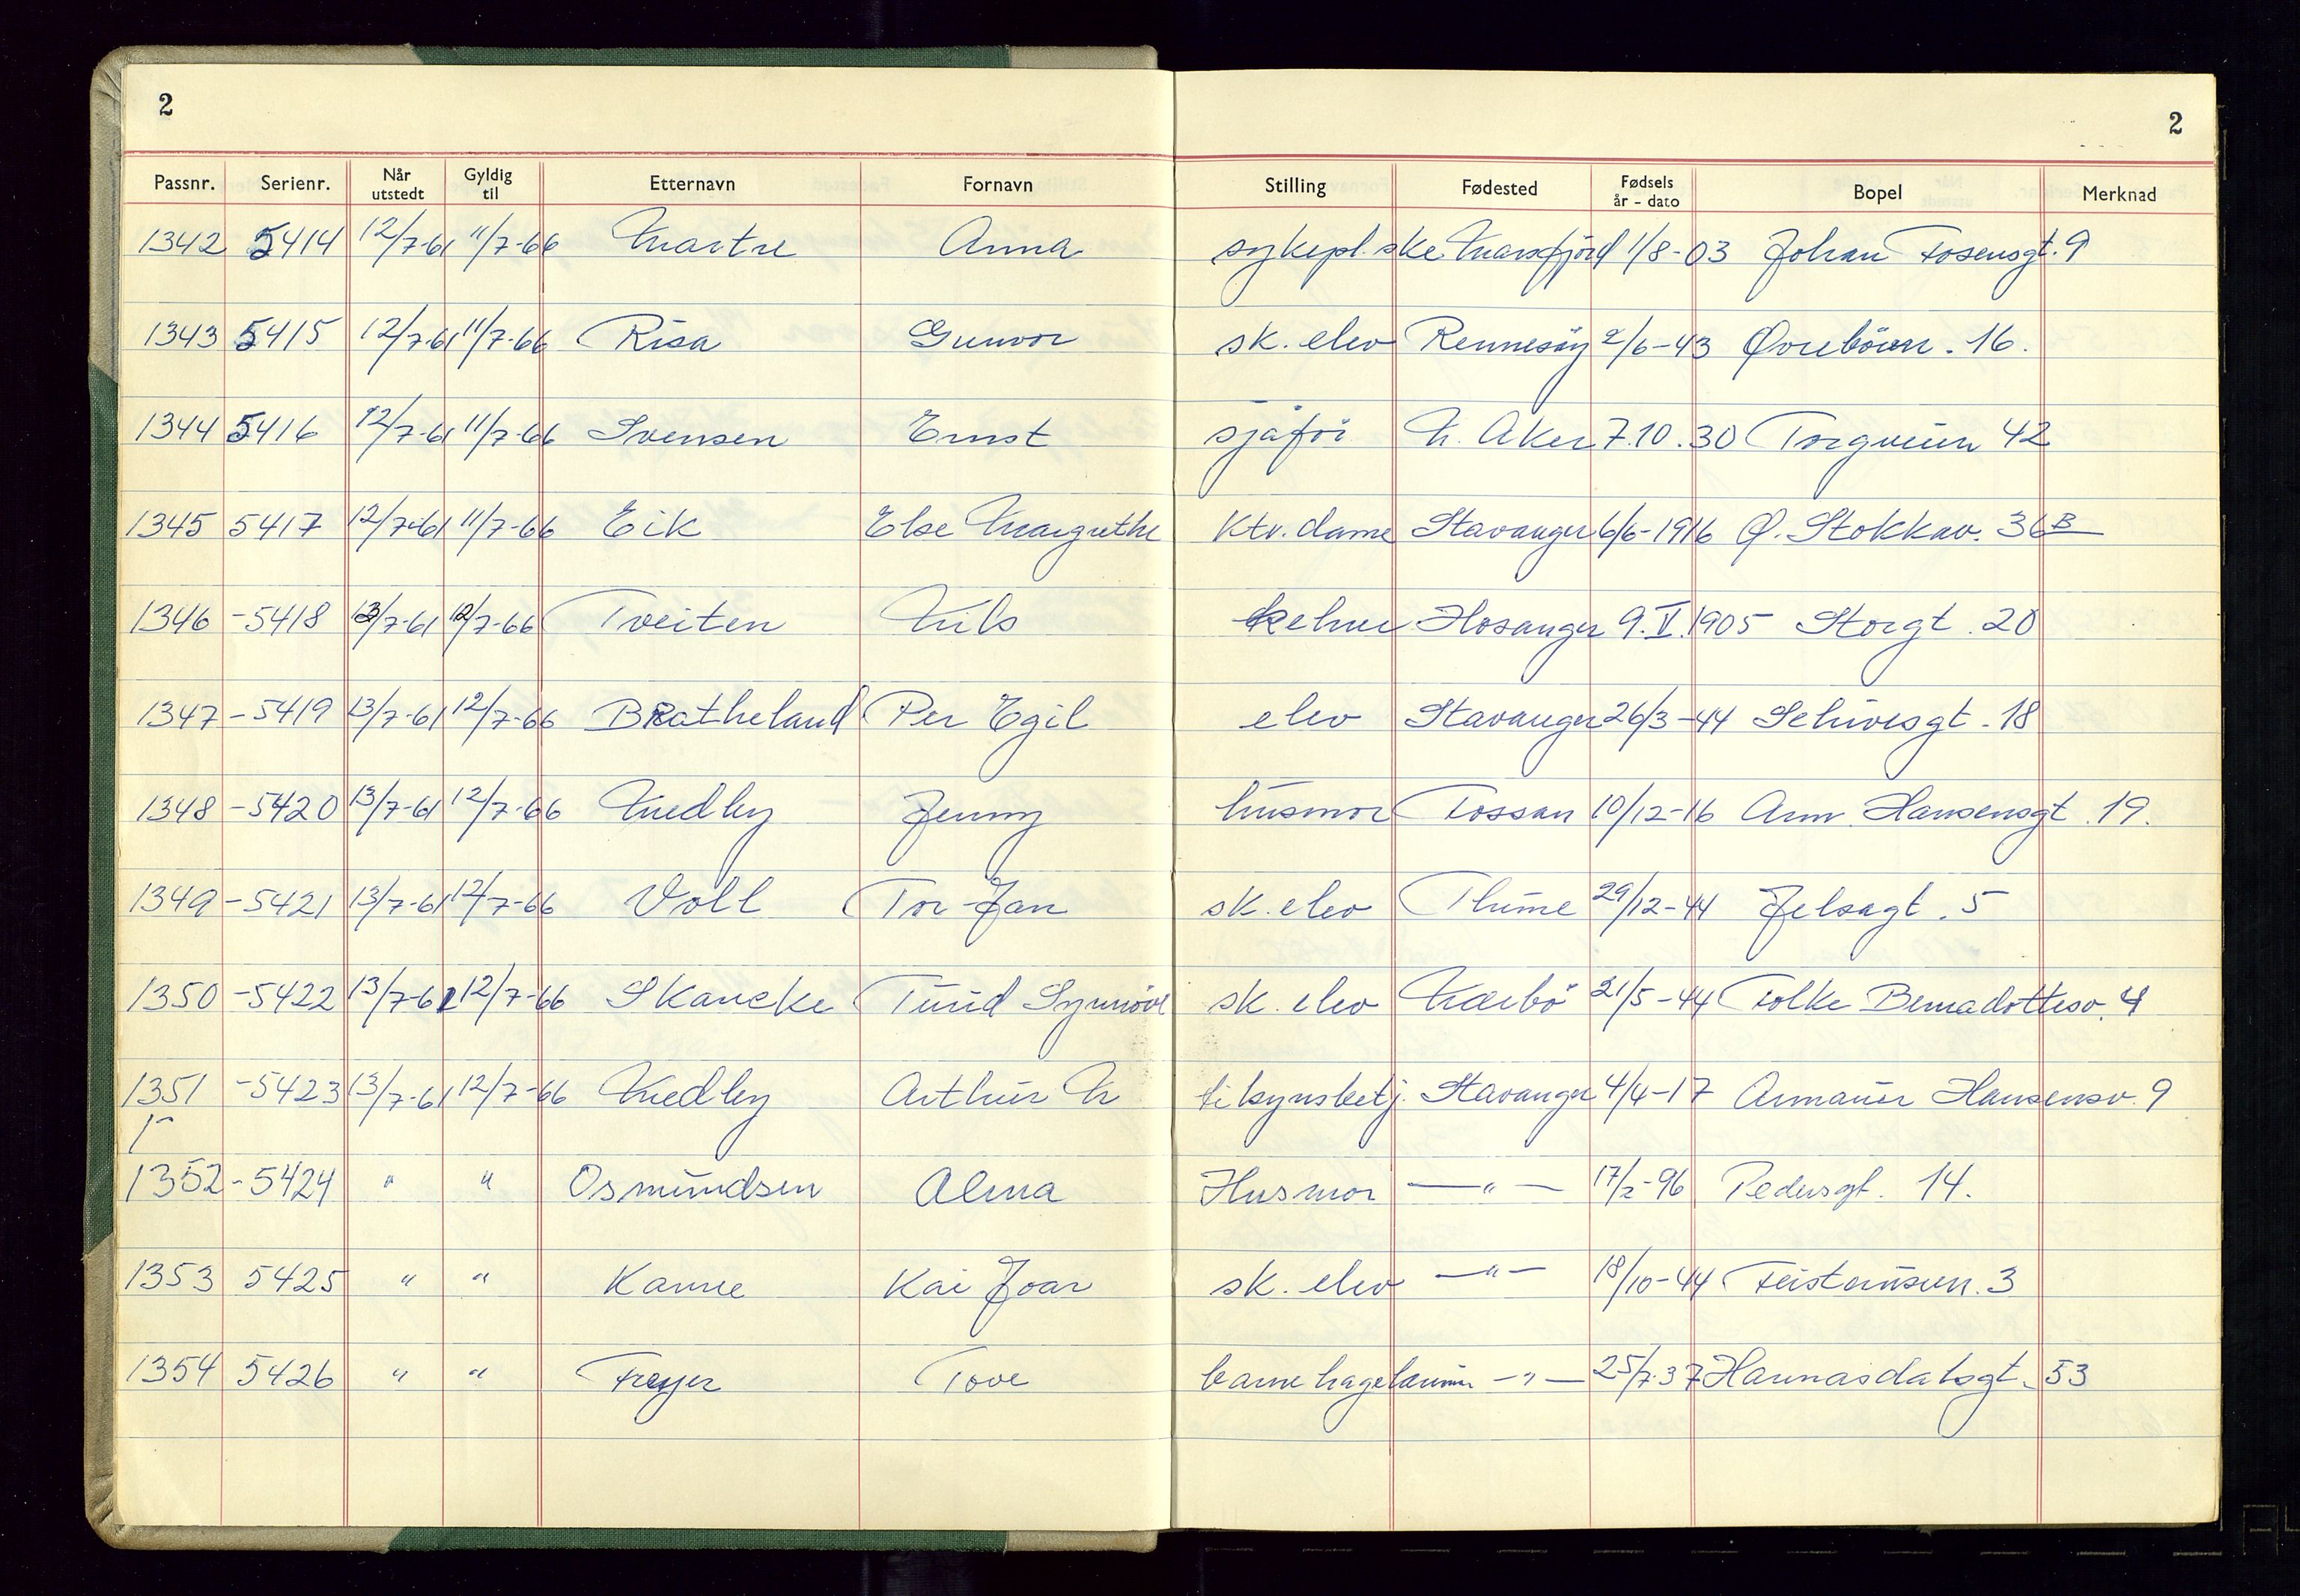 2
2
Passnr. Serienr. Når utstedt Gyldig til Etternavn Fornavn Stilling Fødested Fødsels år - dato Bopel Merknad
1342 5414 12/7-61 11/7-66 Martre Anna sykepl.ske Mansfjord 1/8-03 Johan Fosensgt. 9
1343 5415 12/7-61 11/7-66 Risa Gunvor sk. elev Rennesöy 2/6-43 Øvrebøvn. 16.
1344 5416 12/7-61 11/7-66 Svensen Ernst sjåför N. Aker 7.10.30 Torgveien 42
1345 5417 12/7-61 11/7-66 Eik Else Margrethe Ktr. dame Stavanger 6/6-1916 Ø. Stokkav. 36B
1346 -5418 13/7-61 12/7-66 Tveiten Nils kelner Hosanger 9.V.1905 Storgt. 20
1347 -5419 13/7-61 12/7-66 Bratheland Per Egil elev Stavanger 26/3-44 Schivesgt. 18
1348 -5420 13/7-61 12/7-66 Medby Jenny husmor Fossan 10/12-16 Arm. Hansensgt. 19.
1349 -5421 13/7-61 12/7-66 Voll Tor Jan sk. elev Thime 29/12-44 Jelsagt. 5
1350 -5422 13/7-61 12/7-66 Skancke Turid Synnöve sk. elev Nærbö 21/5-44 Folke Bernadottesv. 4
1351 -5423 13/7-61 12/7-66 Medby Arthur N Stavanger 4/4-17 Armauer Hansensv. 9
1352 -5424 " " Osmundsen Alma Husmor -"- 17/2-96 Pedersgt. 14.
1353 5425 " " Kanne Kai Joar sk. elev -"- 18/10-44 Feisteinsvn. 3
1354 5426 " " Freyer Tove -"- 25/7.37 Hannasdalsgt. 53